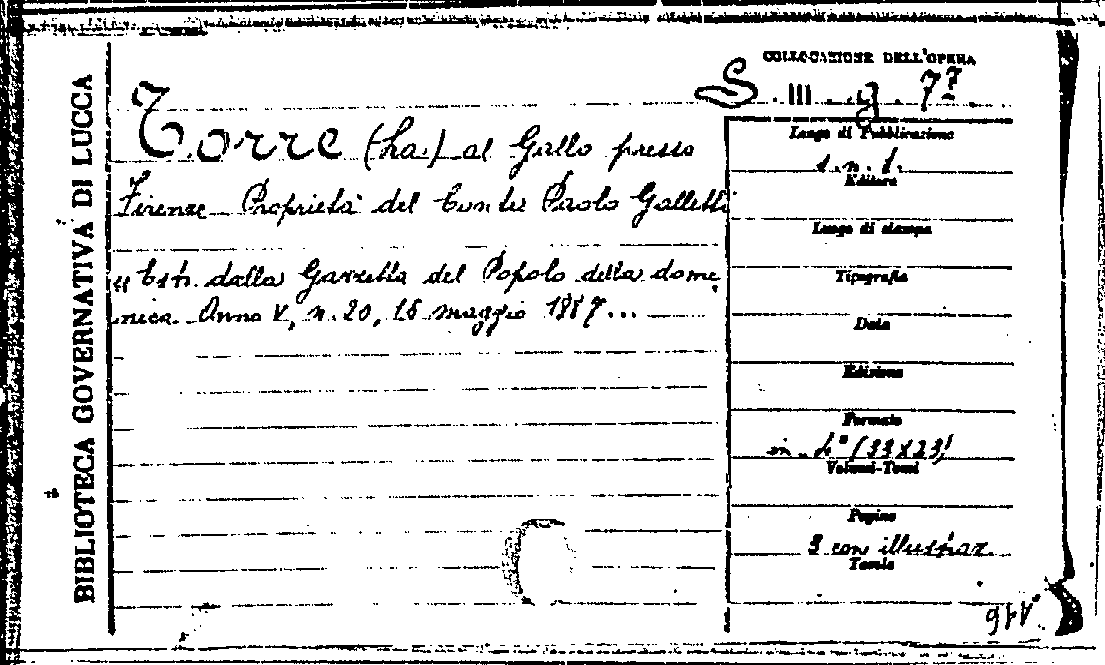 BIBLIOTECA GOVERNATIVA DI LUCCA
COLLOCAZIONE DELL'OPERA
S. III. g. 77
Torre (La) al Gallo presso
Firenze Proprietà del Conte Paolo Galletti
"Estr. dalla Gazzetta del Popolo della dome
nica. Anno V, n. 20, 15 maggio 1887...
Luogo di Pubblicazione
s. n. t.
Editore
Luogo di stampa
Tipografia
Data
Edizione
Formato
in. 4° (33x23)
Volumi-Tomi
Pagine
3 con illustraz.
Tavole